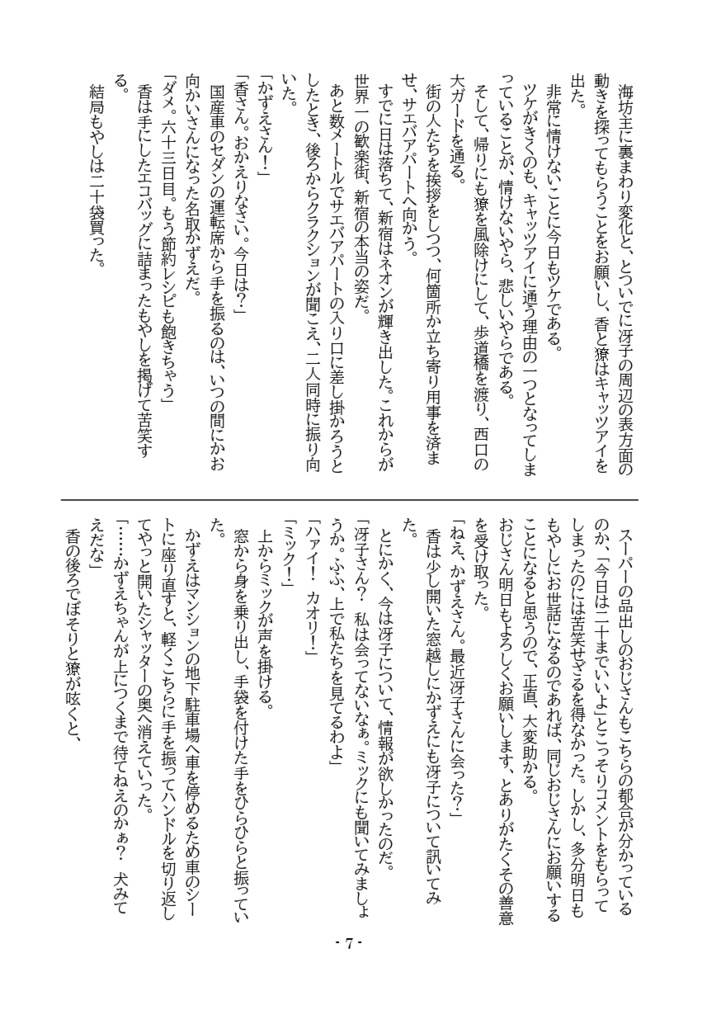 海坊主に裏まわり変化と、とついでに冴子の周辺の表方面の
動きを探ってもらうことをお願いし、香と獠はキャッツアイを
出た。
　非常に情けないことに今日もツケである。
　ツケがきくのも、キャッツアイに通う理由の一つとなってしま
っていることが、情けないやら、悲しいやらである。
　そして、帰りにも獠を風除けにして、歩道橋を渡り、西口の
大ガードを通る。
　街の人たちを挨拶をしつつ、何箇所か立ち寄り用事を済ま
せ、サエバアパートへ向かう。
　すでに日は落ちて、新宿はネオンが輝き出した。これからが
世界一の歓楽街、新宿の本当の姿だ。
　あと数メートルでサエバアパートの入り口に差し掛かろうと
したとき、後ろからクラクションが聞こえ、二人同時に振り向
いた。
「かずえさん！」
「香さん。おかえりなさい。今日は？」
　国産車のセダンの運転席から手を振るのは、いつの間にかお
向かいさんになった名取かずえだ。
「ダメ。六十三日目。もう節約レシピも飽きちゃう」
　香は手にしたエコバッグに詰まったもやしを掲げて苦笑す
る。
　結局もやしは二十袋買った。
　スーパーの品出しのおじさんもこちらの都合が分かっている
のか、「今日は二十までいいよ」とこっそりコメントをもらって
しまったのには苦笑せざるを得なかった。しかし、多分明日も
もやしにお世話になるのであれば、同じおじさんにお願いする
ことになると思うので、正直、大変助かる。
　おじさん明日もよろしくお願いします、とありがたくその善意
を受け取った。
「ねえ、かずえさん。最近冴子さんに会った？」
　香は少し開いた窓越しにかずえにも冴子について訊いてみ
た。
　とにかく、今は冴子について、情報が欲しかったのだ。
「冴子さん？　私は会ってないなぁ。ミックにも聞いてみましょ
うか。ふふ、上で私たちを見てるわよ」
「ハァイ！　カオリ！」
「ミック！」
　上からミックが声を掛ける。
　窓から身を乗り出し、手袋を付けた手をひらひらと振ってい
た。
　かずえはマンションの地下駐車場へ車を停めるため車のシー
トに座り直すと、軽くこちらに手を振ってハンドルを切り返し
てやっと開いたシャッターの奥へ消えていった。
「……かずえちゃんが上につくまで待てねえのかぁ？　犬みて
えだな」
　香の後ろでぼそりと獠が呟くと、
- 7 -